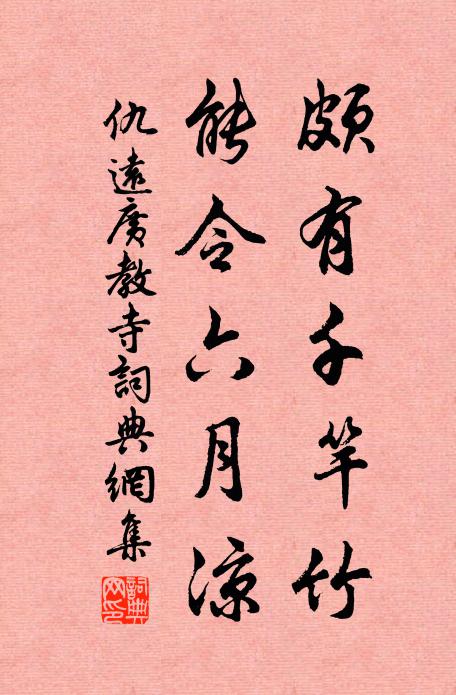 頗有千竿竹
能令六月涼
仇遠廣教寺詞典網集
詞典網印